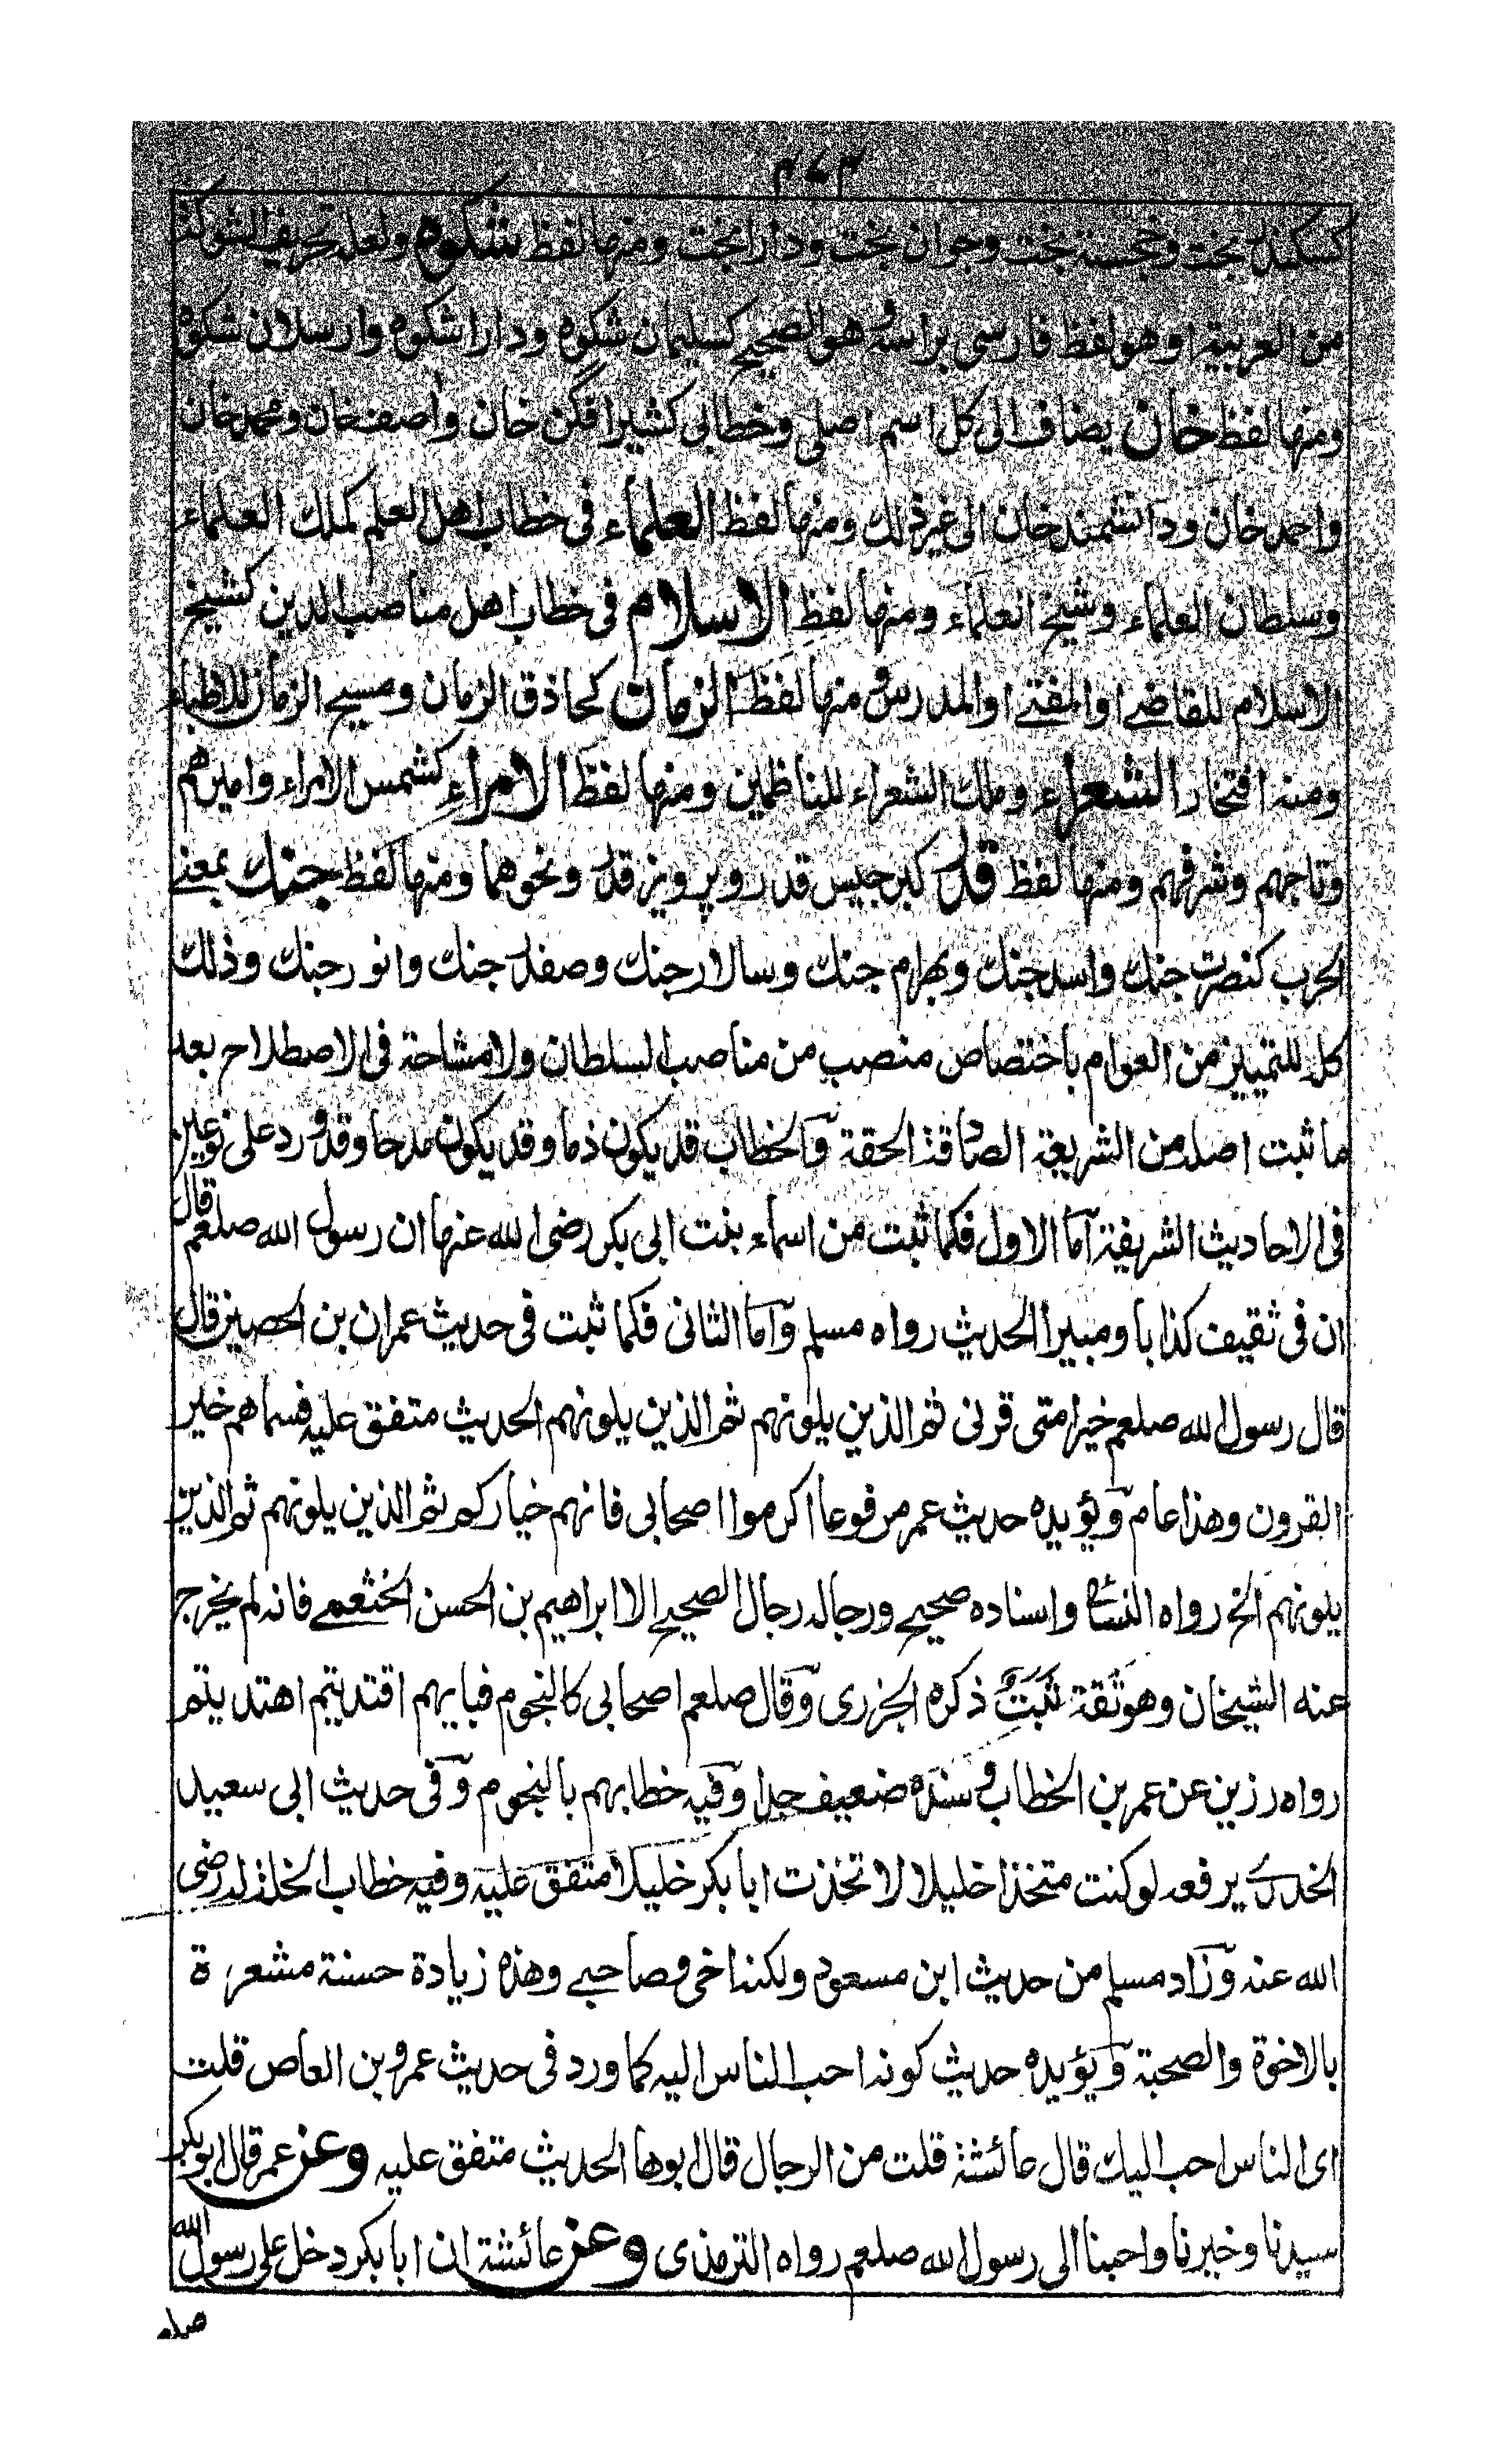 ٣٧٣
كسكندر بخت وخجسته بخت وجوان بخت ودارا بخت ومنها لفظ شكوه ولعله تحريف الشوكة
من العربية او هو لفظ فارسى براسه وهو الصحيح كسليمان شكوه ودارا شكوه وارسلان شكوه
ومنها لفظ خان يضاف الى كل اسم اصلى وخطابى كشير افكن خان وآصف خان ومحمد خان
واحمد خان ودانشمند خان الى غير ذلك ومنها لفظ العلماء فى خطاب اهل العلم كملك العلماء
وسلطان العلماء وشيخ العلماء ومنها لفظ الاسلام فى خطاب اهل مناصب الدين كشيخ
الاسلام للقاضے او المفتے او المدرس ومنها لفظ الزمان كحاذق الزمان ومسيح الزمان للاطباء
ومنه افتخار الشعراء وملك الشعراء للناظمين ومنها لفظ الامراء كشمس الامراء واميرهم
وتاجهم وشرفهم ومنها لفظ قدر كبرجيس قدر وپرويز قدر ونحوهما ومنها لفظ جنك بمعنے
الحرب كنصرت جنك واسد جنك وبهرام جنك وسالار جنك وصفدر جنك وانور جنك وذلك
كل للتمييز من العوام باختصاص منصب من مناصب السلطان ولا مشاحة فى الاصطلاح بعد
ما ثبت اصله من الشريعة الصادقة الحقة وآلخطاب قد يكون ذما وقد يكون مدحا وقد ورد على نوعين
فى الاحاديث الشريفة آما الاول فكما ثبت من اسماء بنت ابى بكر رضى الله عنها ان رسول الله صلعم قال
ان فى ثقيف كذابا ومبيرا الحديث رواه مسلم وآما الثانى فكما ثبت فى حديث عمران بن الحصين قال
قال رسول الله صلعم خير امتى قرنى ثم الذين يلونهم ثم الذين يلونهم الحديث متفق عليه فسماهم خير
القرون وهذا عام وٓيؤيده حديث عمر مرفوعا اكرموا اصحابى فانهم خياركم ثم الذين يلونهم ثم الذين
يلونهم الخ رواه النسائ واسناده صحيح ورجاله رجال الصحيح الا ابراهيم بن الحسن الخثعمے فانه لم يخرج
عنه الشيخان وهو ثقة ثبت ذكره الجزرى وٓقال صلعم اصحابى كالنجوم فبايهم اقتديتم اهتديتم
رواه رزين عن عمر بن الخطاب وسنده ضعيف جدا وٓفيه خطابهم بالنجوم وٓفى حديث ابى سعيد
الخدرے يرفعه لو كنت متخذا خليلا لاتخذت ابا بكر خليلا متفق عليه وفيه خطاب الخلة له رضى
الله عنه وٓزاد مسلم من حديث ابن مسعود ولكنه اخى وصاحبے وهذه زيادة حسنة مشعرة
بالاخوة والصحبة وٓيؤيده حديث كونه احب الناس اليه كما ورد فى حديث عمرو بن العاص قلت
اى الناس احب اليك قال عائشة قلت من الرجال قال ابوها الحديث متفق عليه وعن عمر قال ابو بكر
سيدنا وخيرنا واحبنا الى رسول الله صلعم رواه الترمذى وعن عائشة ان ابا بكر دخل على رسول الله
صلعم